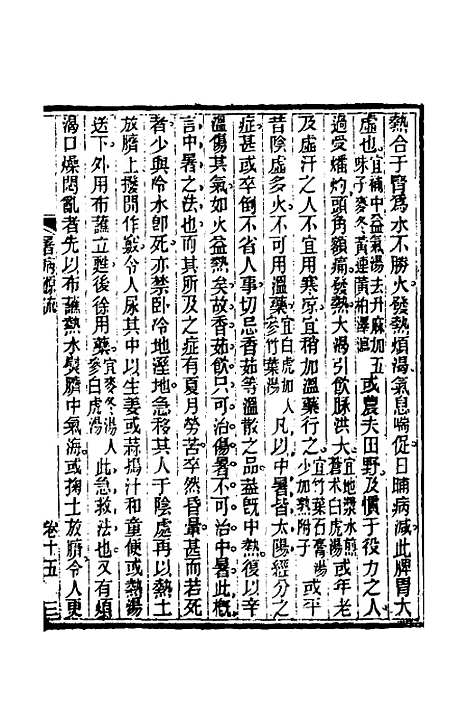 熱合于腎爲水不勝火發熱煩渴氣息喘促日晡病減此脾胃大
虛也宜補中益氣湯去升麻加五味子麥冬黃連黃柏澤瀉或農夫田野及慣于役力之人
過受燔灼頭角額痛發熱大渴引飲脉洪大宜地漿水煎蒼术白虎湯或年老
及虛汗之人不宜用寒凉宜稍加溫藥行之宜竹葉石膏湯少加熟附子或平
昔陰虛多火不可用溫藥宜白虎加人參竹葉湯凡以中暑皆太陽經分之
症甚或卒倒不省人事切忌香茹等溫散之品益既中熱復以辛
溫傷其氣如火益熱矣故香茹飲只可治傷暑不可治中暑此槪
言中暑之法也而其所及之症有夏月勞苦卒然昏暈甚而若死
者少與冷水卽死亦禁卧冷地溼地急移其人于陰處再以熱土
放臍上撥開作竅令人尿其中以生姜或蒜搗汁和童便或熱湯
送下外用布蘸立甦後徐用藥宜麥冬湯人參白虎湯此急救法也又有煩
渴口燥悶亂者先以布蘸熱水熨臍中氣海或掬土放臍令人更
暑病源流
卷十五
三